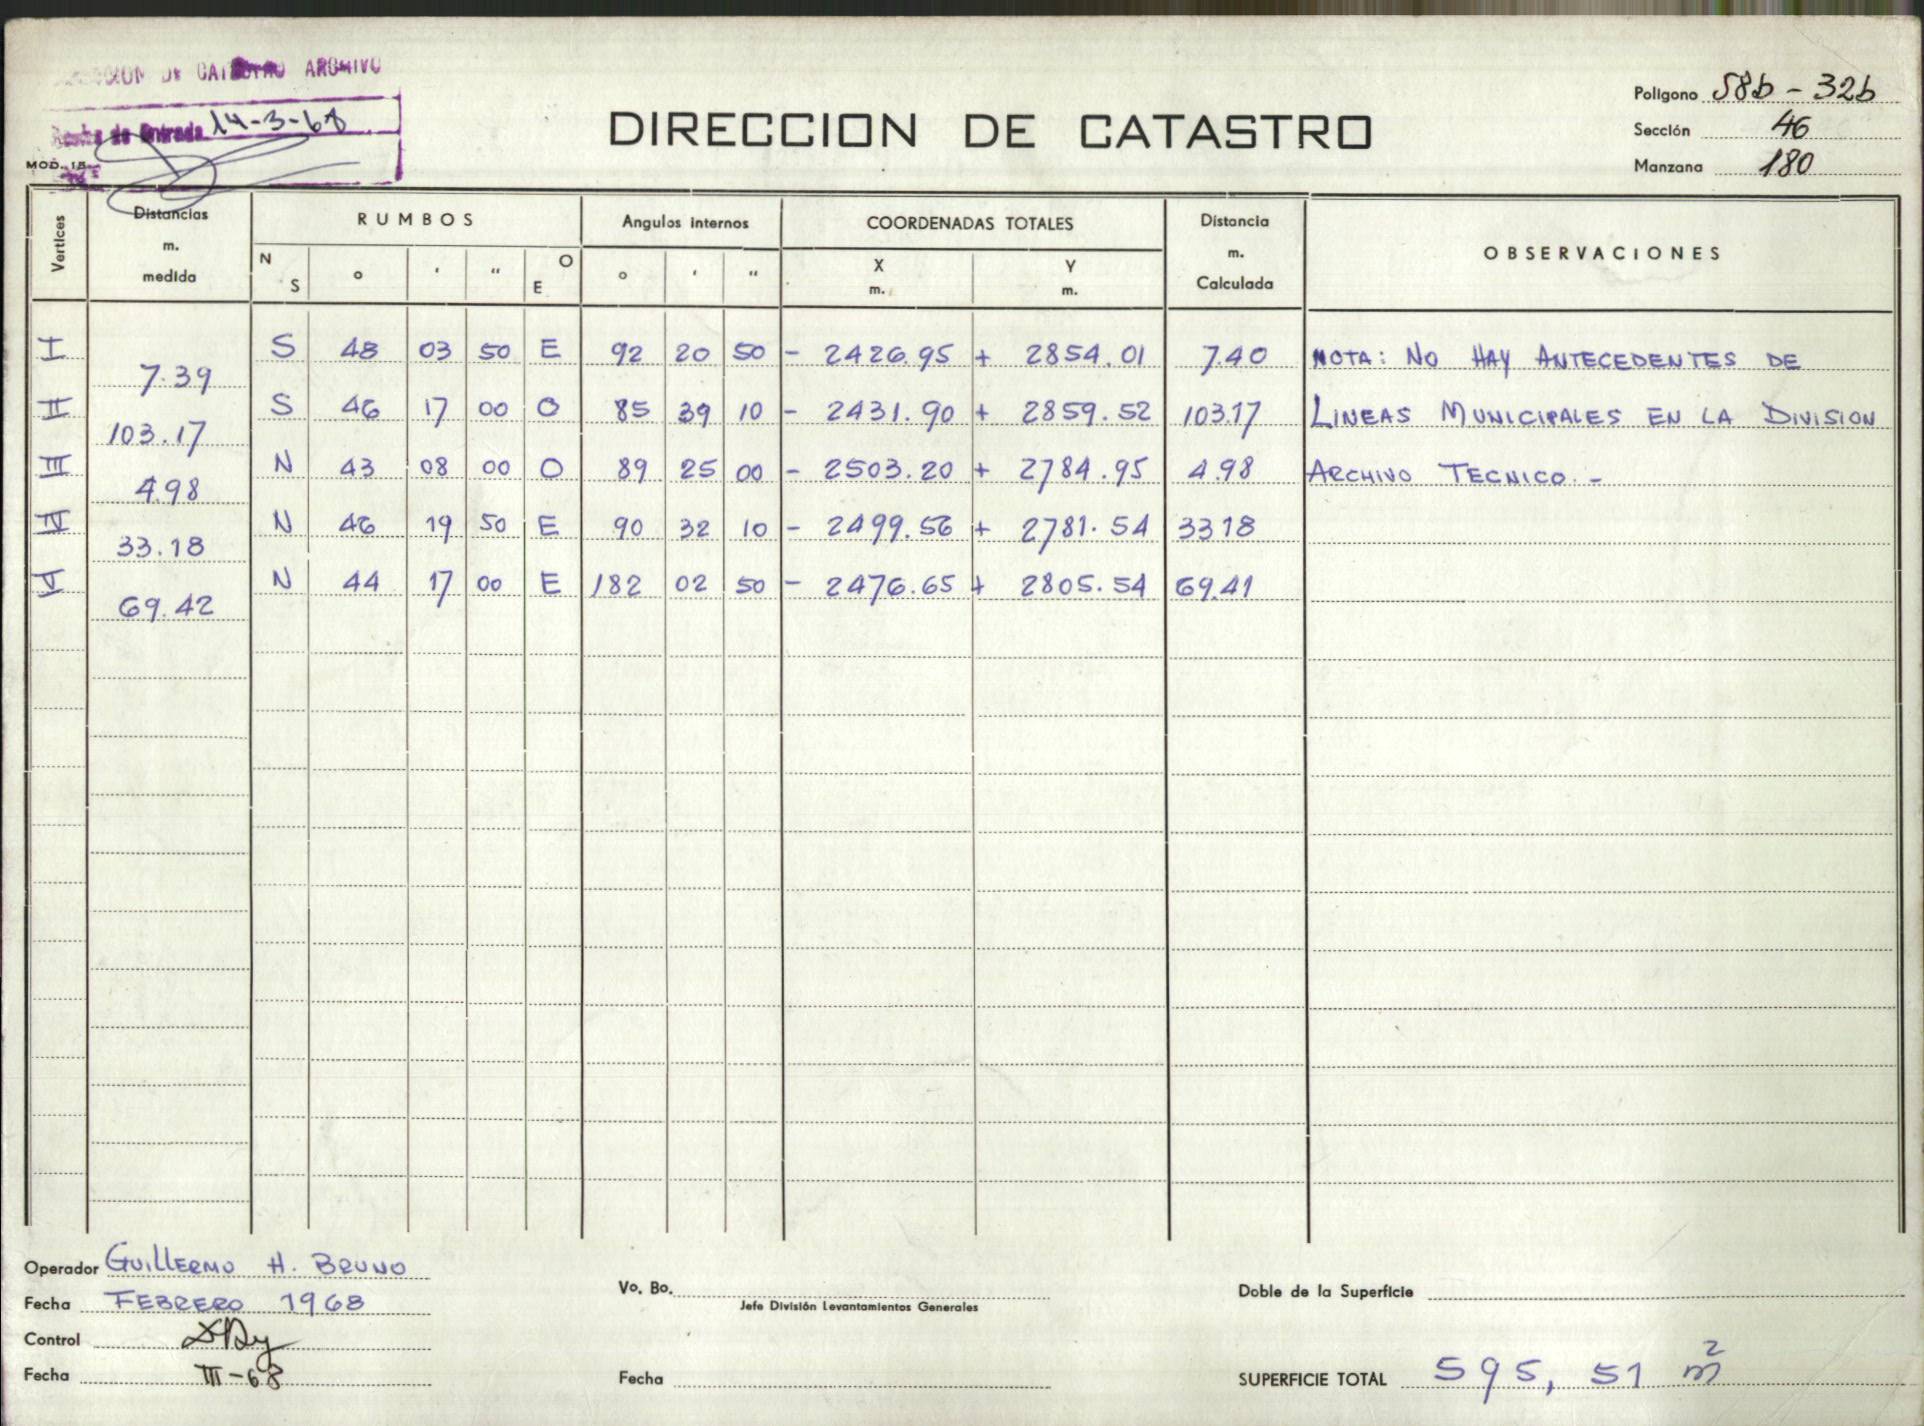 DE CATASTRO ARCHIVO
Fecha de Entrada 14-3-68
MOD. 18
DIRECCION DE CATASTRO
Poligono 58b - 32b
Sección 46
Manzana 180
Vertices Distancias m. medida RUMBOS N S ° ' " O E Angulos internos ° ' " COORDENADAS TOTALES X m. Y m. Distancia m. Calculada OBSERVACIONES
I 7.39 S 48 03 50 E 92 20 50 - 2426.95 + 2854.01 7.40 NOTA: NO HAY ANTECEDENTES DE
II 103.17 S 46 17 00 O 85 39 10 - 2431.90 + 2859.52 103.17 LINEAS MUNICIPALES EN LA DIVISION
III 4.98 N 43 08 00 O 89 25 00 - 2503.20 + 2784.95 4.98 ARCHIVO TECNICO.-
IV 33.18 N 46 19 50 E 90 32 10 - 2499.56 + 2781.54 33 18
V 69.42 N 44 17 00 E 182 02 50 - 2476.65 + 2805.54 69.41
Operador GUILLERMO H. BRUNO
Fecha FEBRERO 1968
Control
Fecha III-68
Vo. Bo.
Jefe División Levantamientos Generales
Fecha
Doble de la Superficie
SUPERFICIE TOTAL 595,51 m²